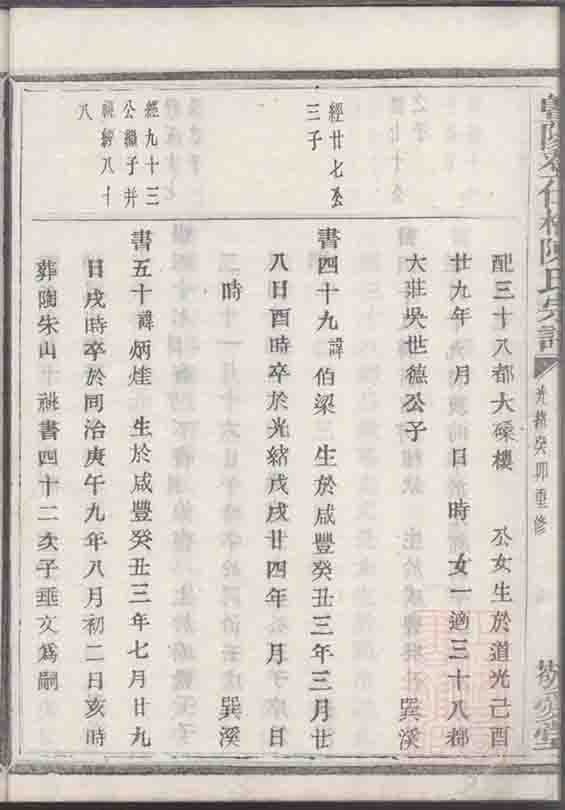 陳氏宗譜
光緒癸卯重修
配三十八都大磜樓 公女生於道光己酉
廿九年 月 日 時 女一適三十八都
大莊吳世德公子 巽溪
經廿七公
三子
書四十九諱伯梁 生於咸豐癸丑三年三月廿
八日酉時卒於光緒戊戌廿四年 月 日
時 巽溪
經九十三
公繼子并
祧經八十
八
書五十諱炳煃 生於咸豐癸丑三年七月廿九
日戌時卒於同治庚午九年八月初二日亥時
葬陶朱山 祧書四十二次子垂文為嗣